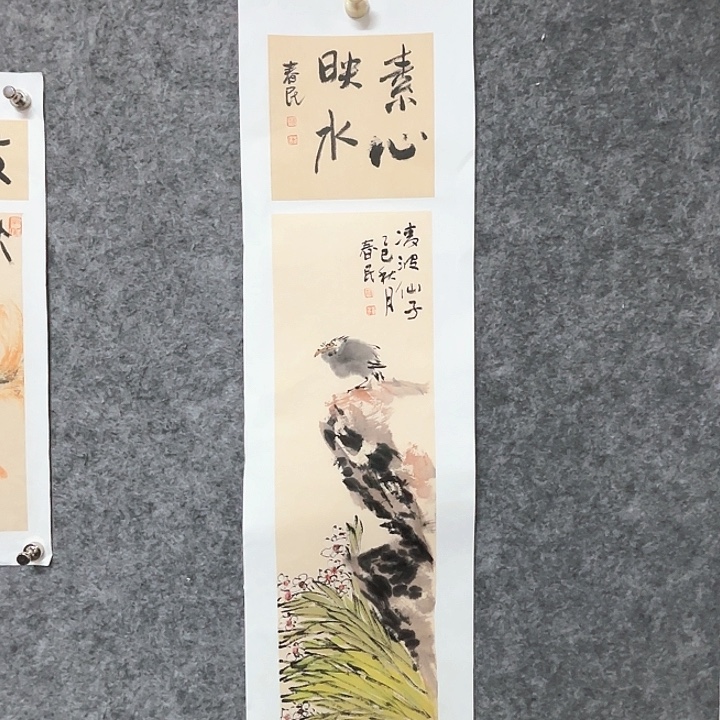 素心
映水
春民
凌波仙子
乙巳秋月
春民